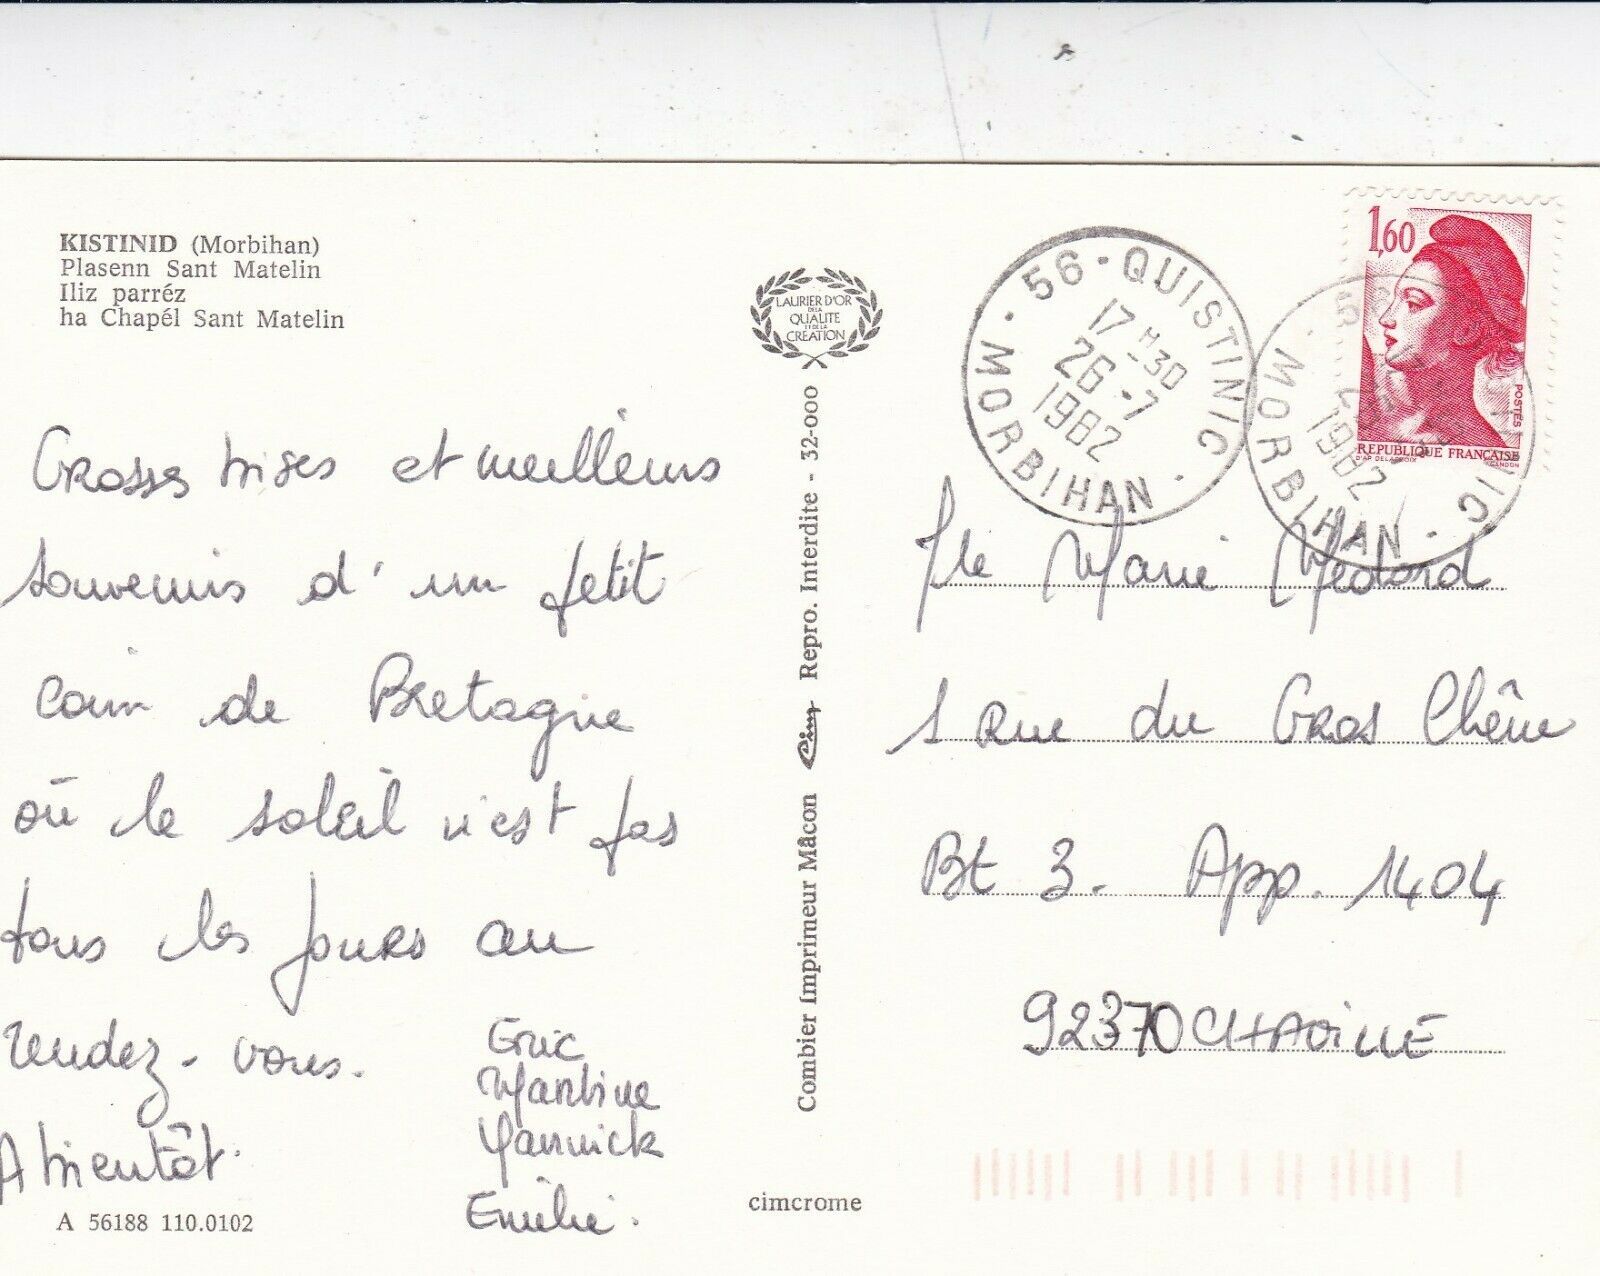 KISTINID (Morbihan)
Plasenn Sant Matelin
Iliz parréz
ha Chapél Sant Matelin
Grosses bises et meilleurs
souvenirs d'un petit
coin de Bretagne
où le soleil n'est pas
tous les jours au
rendez-vous.
A bientôt.
Eric
Martine
Yannick
Emilie.
A 56188 110.0102
LAURIER D'OR
DE LA
QUALITE
ET DE LA
CREATION
Combier Imprimeur Mâcon Cim Repro. Interdite - 32-000
cimcrome
56 - QUISTINIC
17H30
26-7
1982
MORBIHAN
1982
MORBIHAN
1,60
POSTES
REPUBLIQUE FRANÇAISE
D'AP. DELACROIX GANDON
Marie Medard
1 Rue du Gros Chêne
Bt 3. App. 1404
92370 CHAVILLE